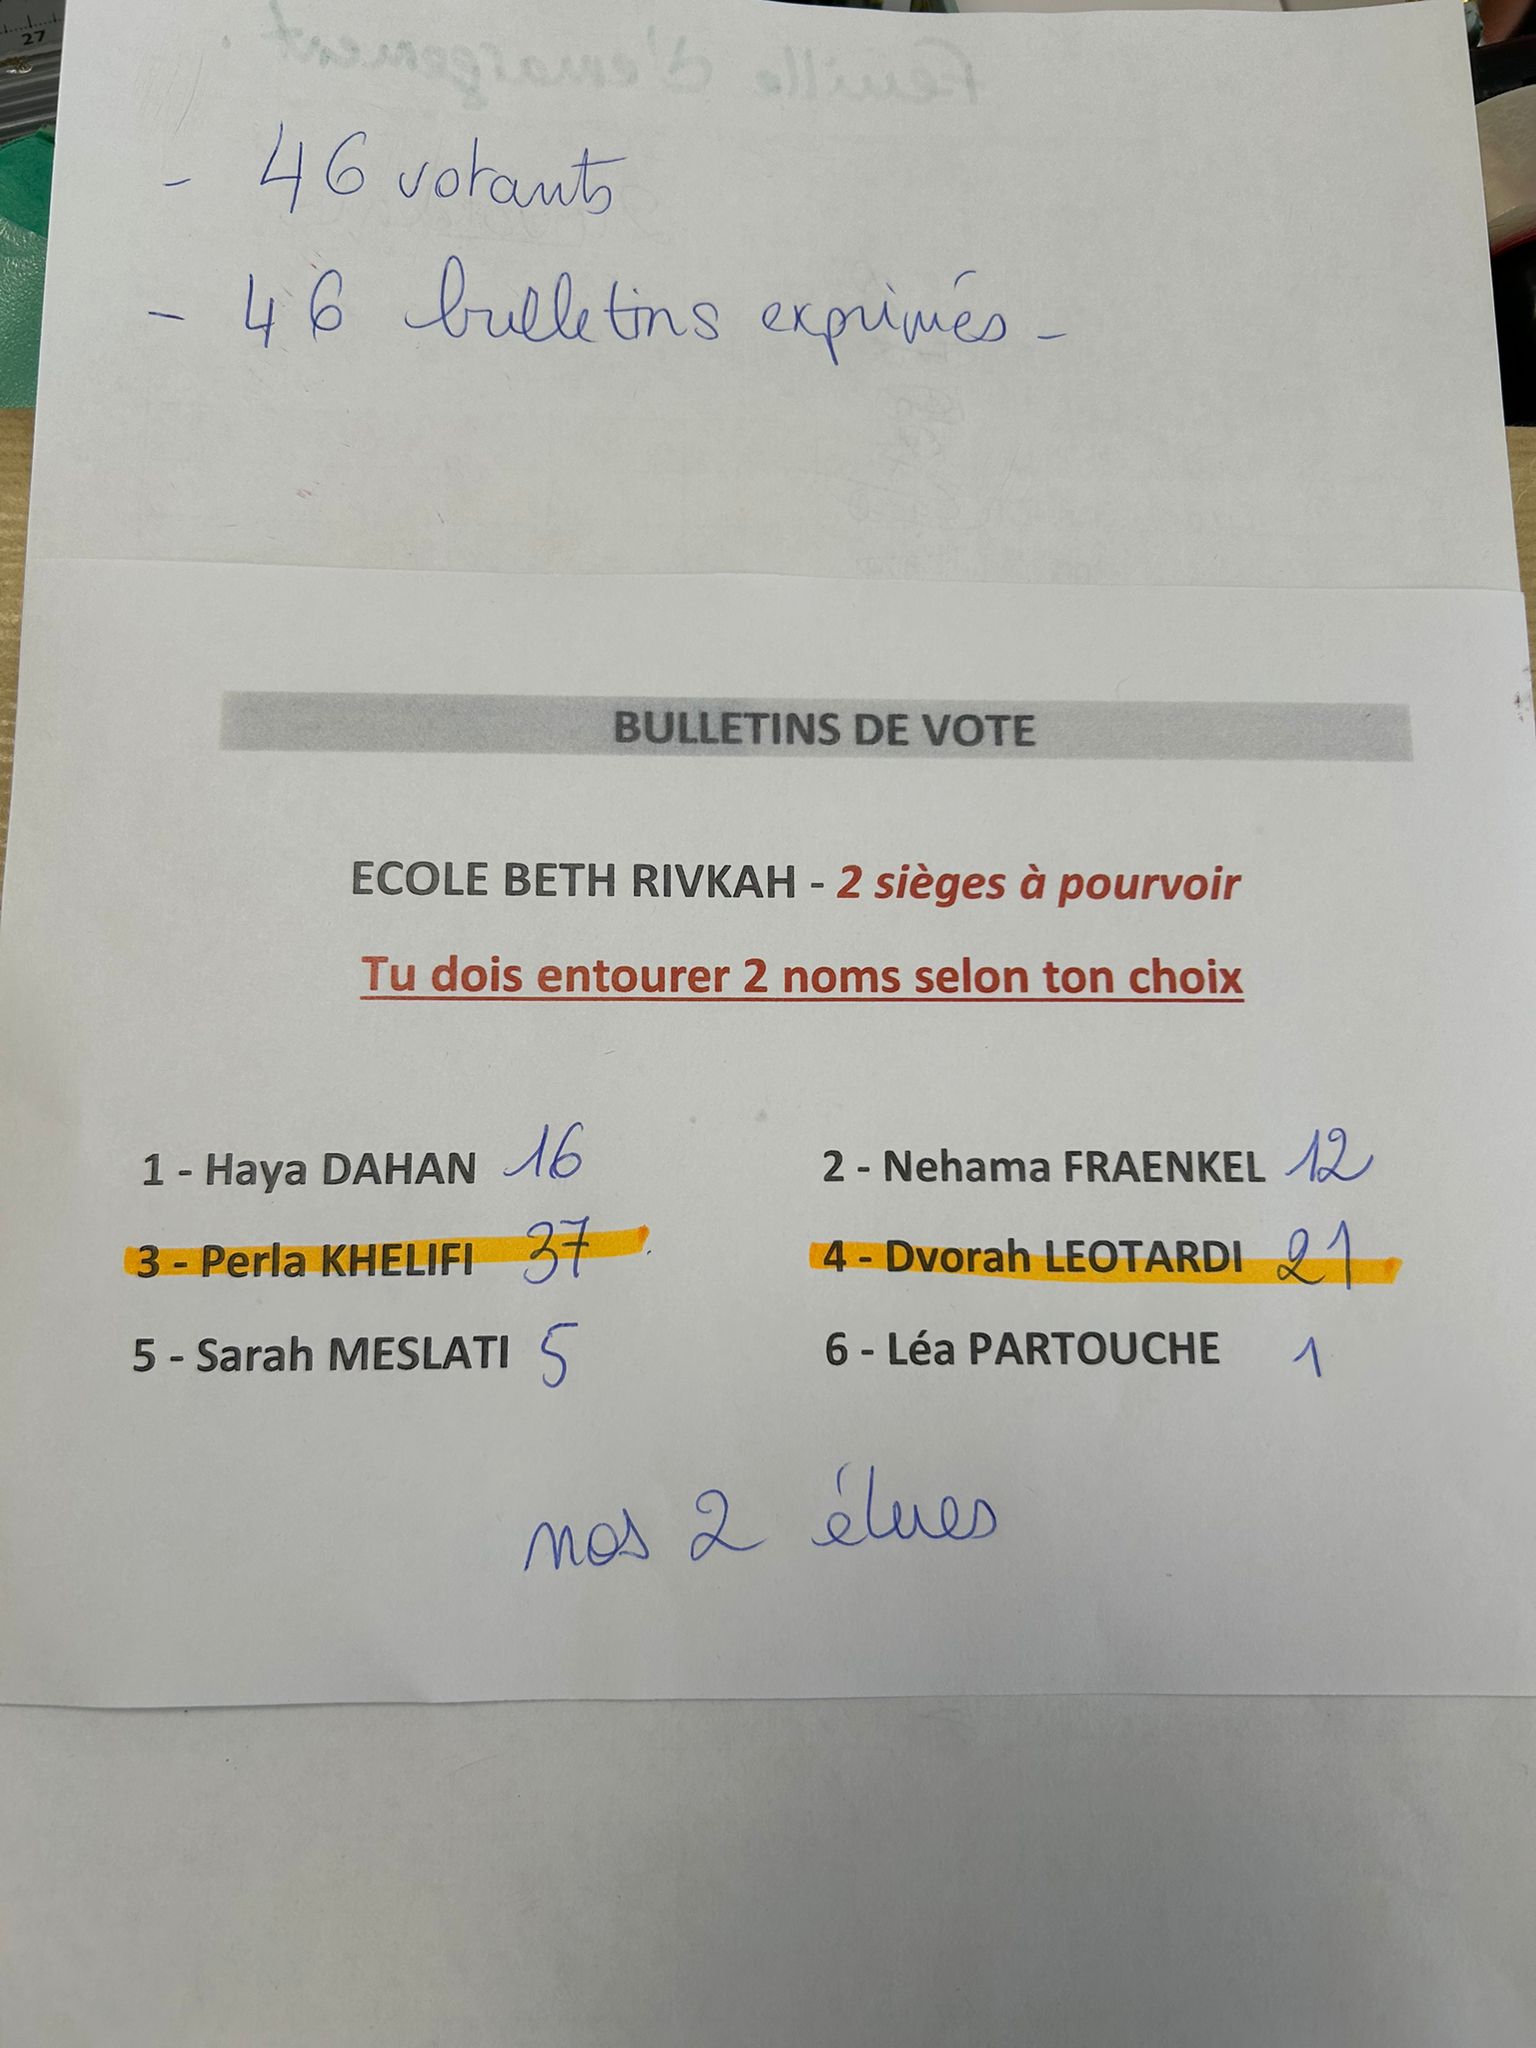 27
Feuille d'émargement.
- 46 votants
- 46 bulletins exprimés -
BULLETINS DE VOTE
ECOLE BETH RIVKAH - 2 sièges à pourvoir
Tu dois entourer 2 noms selon ton choix
1 - Haya DAHAN 16
2 - Nehama FRAENKEL 12
3 - Perla KHELIFI 37
4 - Dvorah LEOTARDI 21
5 - Sarah MESLATI 5
6 - Léa PARTOUCHE 1
nos 2 élues